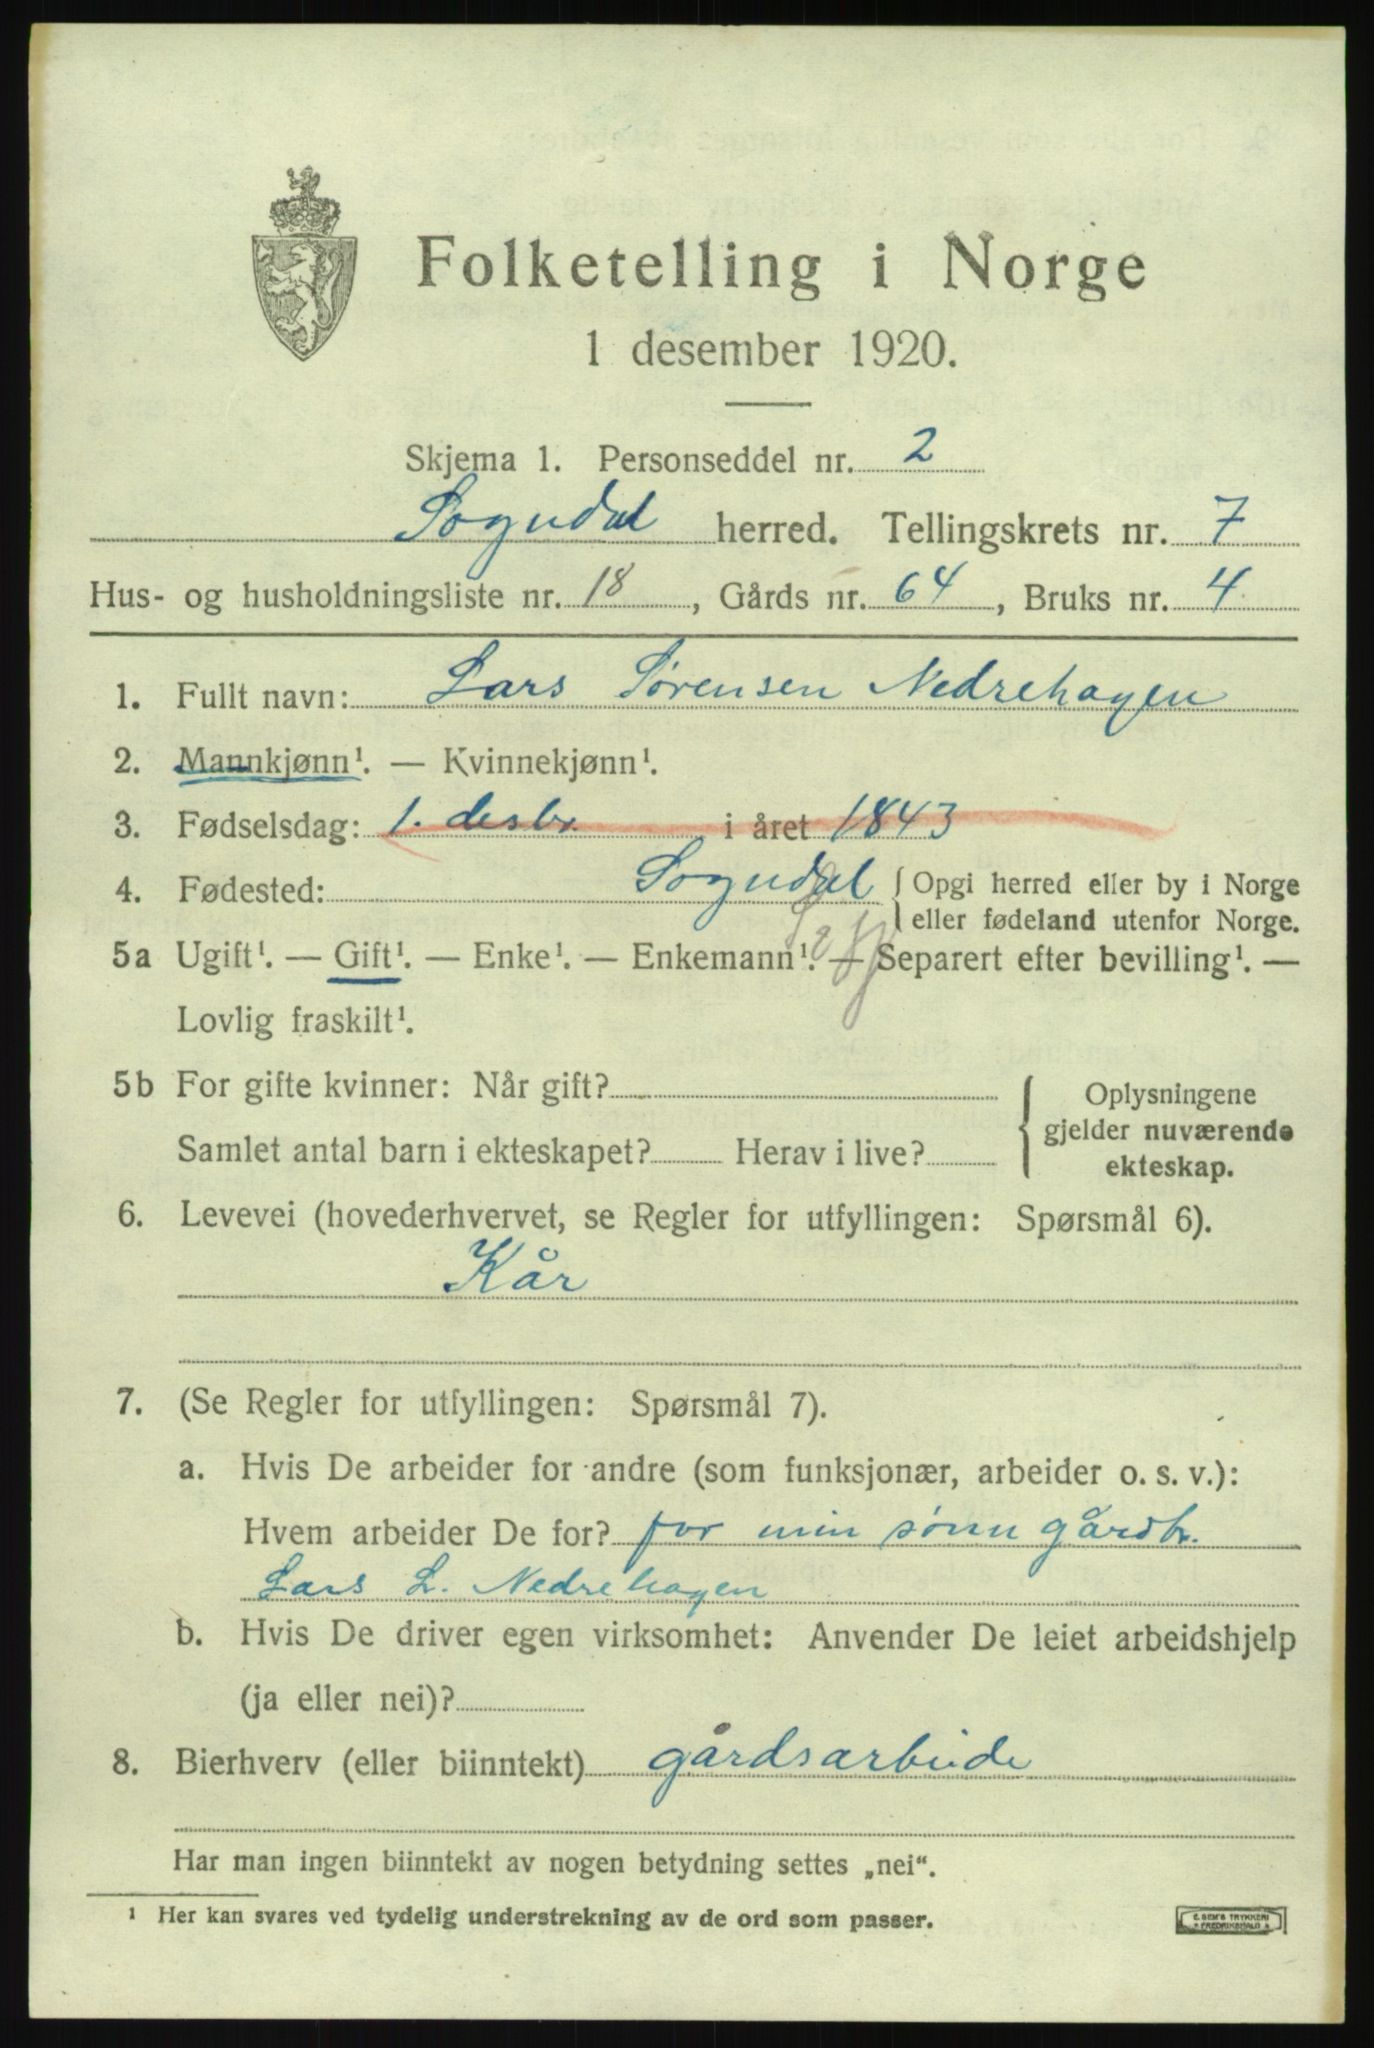 Folketelling i Norge
1 desember 1920.
Skjema 1. Personseddel nr. 2
Sogndal herred. Tellingskrets nr. 7
Hus- og husholdningsliste nr. 18, Gårds nr. 64, Bruks nr. 4
1. Fullt navn: Lars Sørensen Nedrehagen
2. Mannkjønn¹. — Kvinnekjønn¹.
3. Fødselsdag: 1. desbr. i året 1843
4. Fødested: Sogndal { Opgi herred eller by i Norge
eller fødeland utenfor Norge.
5a Ugift¹. — Gift¹. — Enke¹. — Enkemann¹. — Separert efter bevilling¹. —
Lovlig fraskilt¹.
5b For gifte kvinner: Når gift?
Samlet antal barn i ekteskapet? Herav i live?
Oplysningene
gjelder nuværende
ekteskap.
6. Levevei (hovederhvervet, se Regler for utfyllingen: Spørsmål 6).
Kår
7. (Se Regler for utfyllingen: Spørsmål 7).
a. Hvis De arbeider for andre (som funksjonær, arbeider o. s. v.):
Hvem arbeider De for? for min sønn gårdbr.
Lars L. Nedrehagen
b. Hvis De driver egen virksomhet: Anvender De leiet arbeidshjelp
(ja eller nei)?
8. Bierhverv (eller biinntekt) gårdsarbeide
Har man ingen biinntekt av nogen betydning settes „nei“.
¹ Her kan svares ved tydelig understrekning av de ord som passer.
E. SEM'S TRYKKERI
FREDRIKSHALD